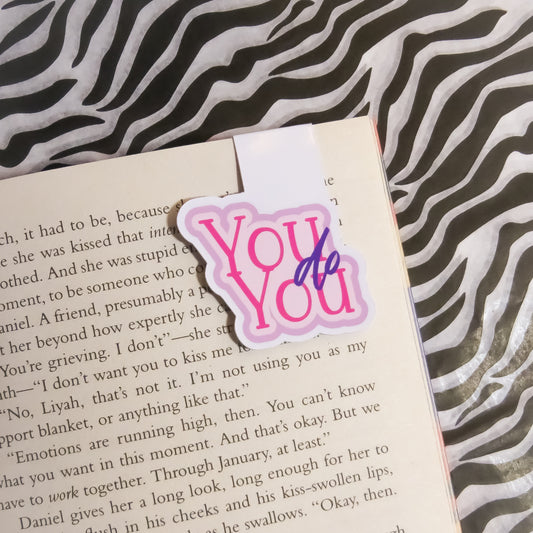 You
do
You
ch, it had to be, because
e she was kissed that inter
othed. And she was stupid e
oment, to be someone who co
aniel. A friend, presumably a p
t her beyond how expertly she c
You're grieving. I don't"—she str
th—"I don't want you to kiss me
"No, Liyah, that's not it. I'm not using you as my
pport blanket, or anything like that."
"Emotions are running high, then. You can't know
what you want in this moment. And that's okay. But we
have to work together. Through January, at least."
Daniel gives her a long look, long enough for her to
flush in his cheeks and his kiss-swollen lips,
as he swallows. "Okay, then.
through